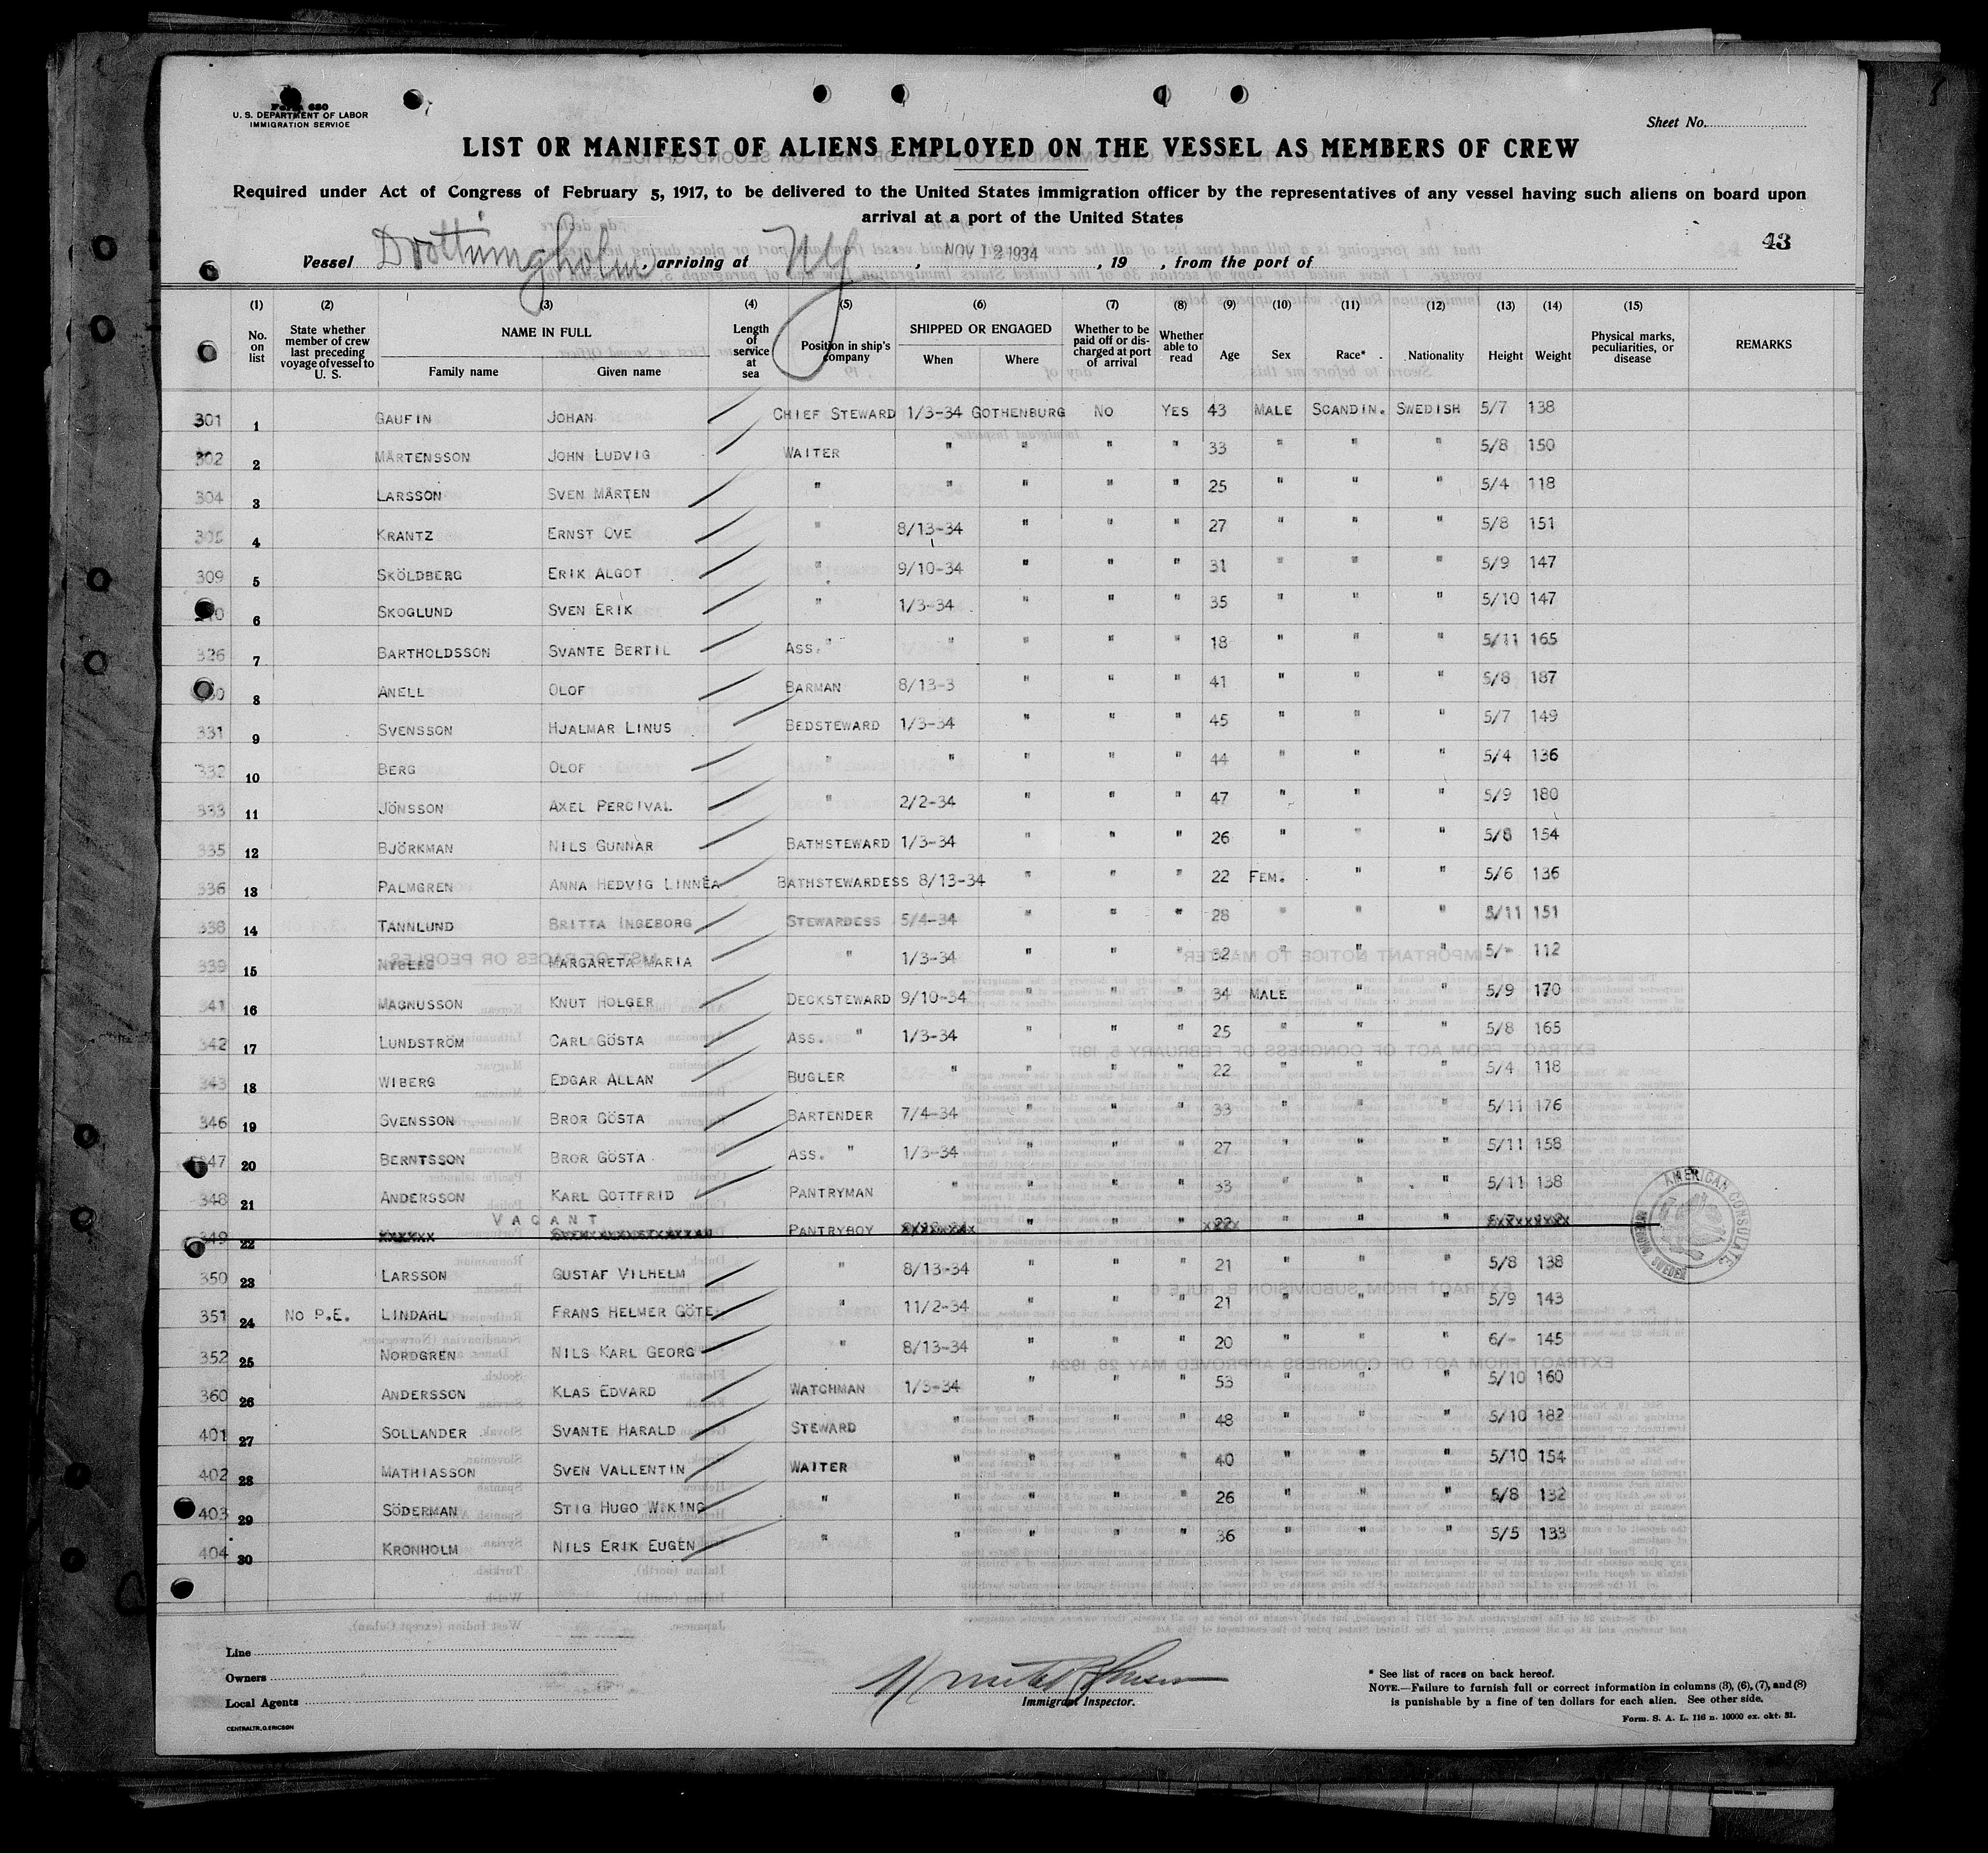 Form 680
U. S. DEPARTMENT OF LABOR
IMMIGRATION SERVICE
Sheet No.
LIST OR MANIFEST OF ALIENS EMPLOYED ON THE VESSEL AS MEMBERS OF CREW
Required under Act of Congress of February 5, 1917, to be delivered to the United States immigration officer by the representatives of any vessel having such aliens on board upon
arrival at a port of the United States
43
Vessel Drottningholm, arriving at NY, NOV 12 1934, 19 , from the port of
(1) (2) (3) (4) (5) (6) (7) (8) (9) (10) (11) (12) (13) (14) (15)
No. on list State whether member of crew last preceding voyage of vessel to U. S. NAME IN FULL Family name Given name Length of service at sea Position in ship's company SHIPPED OR ENGAGED When Where Whether to be paid off or discharged at port of arrival Whether able to read Age Sex Race* Nationality Height Weight Physical marks, peculiarities, or disease REMARKS
301 1 GAUFIN JOHAN CHIEF STEWARD 1/3-34 GOTHENBURG NO YES 43 MALE SCANDIN. SWEDISH 5/7 138
302 2 MÅRTENSSON JOHN LUDVIG WAITER " " " " 33 " " " 5/8 150
304 3 LARSSON SVEN MÅRTEN " " " " " 25 " " " 5/4 118
305 4 KRANTZ ERNST OVE " 8/13-34 " " " 27 " " " 5/8 151
309 5 SKÖLDBERG ERIK ALGOT " 9/10-34 " " " 31 " " " 5/9 147
6 SKOGLUND SVEN ERIK " 1/3-34 " " " 35 " " " 5/10 147
326 7 BARTHOLDSSON SVANTE BERTIL ASS. " " " " " 18 " " " 5/11 165
8 ANELL OLOF BARMAN 8/13-3 " " " 41 " " " 5/8 187
331 9 SVENSSON HJALMAR LINUS BEDSTEWARD 1/3-34 " " " 45 " " " 5/7 149
332 10 BERG OLOF " " " " " 44 " " " 5/4 136
333 11 JÖNSSON AXEL PERCIVAL " 2/2-34 " " " 47 " " " 5/9 180
335 12 BJÖRKMAN NILS GUNNAR BATHSTEWARD 1/3-34 " " " 26 " " " 5/8 154
336 13 PALMGREN ANNA HEDVIG LINNEA BATHSTEWARDESS 8/13-34 " " " 22 FEM. " " 5/6 136
338 14 TANNLUND BRITTA INGEBORG STEWARDESS 5/4-34 " " " 28 " " " 5/11 151
339 15 NYBERG MARGARETA MARIA " 1/3-34 " " " 32 " " " 5/- 112
341 16 MAGNUSSON KNUT HOLGER DECKSTEWARD 9/10-34 " " " 34 MALE " " 5/9 170
342 17 LUNDSTRÖM CARL GÖSTA ASS. " 1/3-34 " " " 25 " " " 5/8 165
343 18 WIBERG EDGAR ALLAN BUGLER " " " " 22 " " " 5/4 118
346 19 SVENSSON BROR GÖSTA BARTENDER 7/4-34 " " " 33 " " " 5/11 176
347 20 BERNTSSON BROR GÖSTA ASS. " 1/3-34 " " " 27 " " " 5/11 158
348 21 ANDERSSON KARL GOTTFRID PANTRYMAN " " " " 33 " " " 5/11 138
349 22 VACANT PANTRYBOY " " " " " "
350 23 LARSSON GUSTAF VILHELM " 8/13-34 " " " 21 " " " 5/8 138
351 24 NO P.E. LINDAHL FRANS HELMER GÖTE " 11/2-34 " " " 21 " " " 5/9 143
352 25 NORDGREN NILS KARL GEORG " 8/13-34 " " " 20 " " " 6/- 145
360 26 ANDERSSON KLAS EDVARD WATCHMAN 1/3-34 " " " 53 " " " 5/10 160
401 27 SOLLANDER SVANTE HARALD STEWARD " " " " 48 " " " 5/10 182
402 28 MATHIASSON SVEN VALLENTIN WAITER " " " " 40 " " " 5/10 154
403 29 SÖDERMAN STIG HUGO WIKING " " " " " 26 " " " 5/8 132
404 30 KRONHOLM NILS ERIK EUGEN " " " " " 36 " " " 5/5 133
AMERICAN CONSULATE SWEDEN
Line
Owners
Local Agents
CENTRALTR. G. ERICSON
Immigrant Inspector.
* See list of races on back hereof.
NOTE.—Failure to furnish full or correct information in columns (3), (6), (7), and (8)
is punishable by a fine of ten dollars for each alien. See other side.
Form. S. A. L. 116 n. 10000 ex. okt. 31.